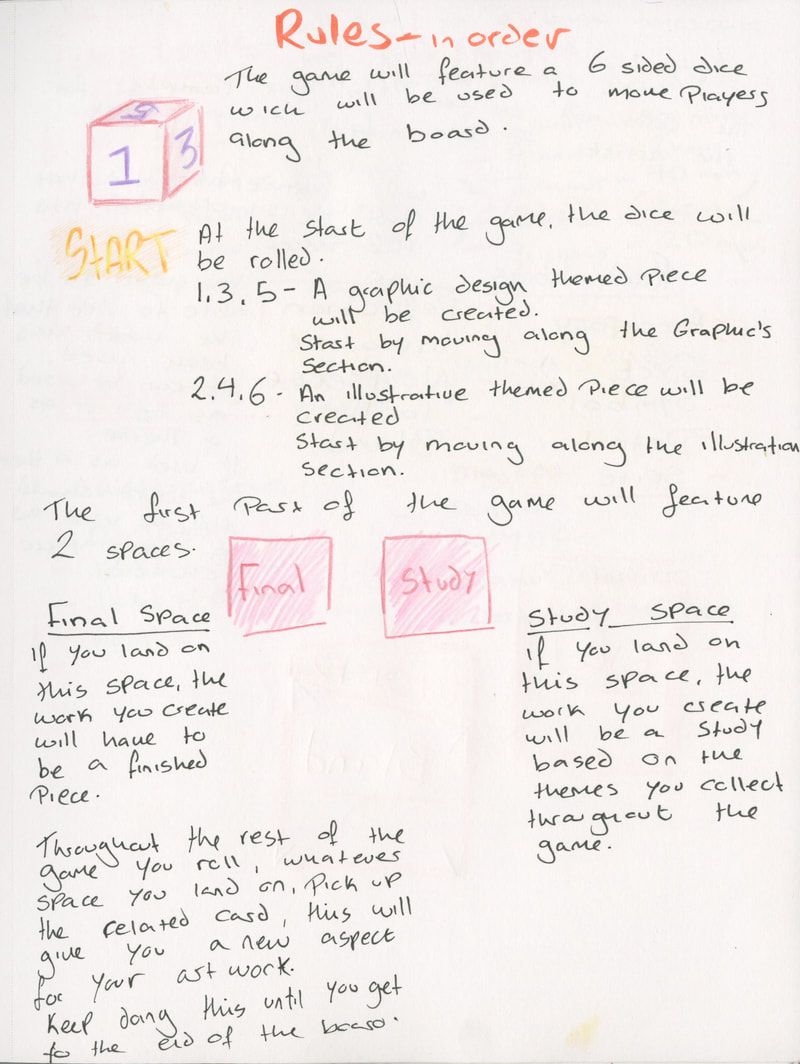 Rules - in order
The game will feature a 6 sided dice
wich will be used to move Players
along the board.
5
1 3
START
At the start of the game, the dice will
be rolled.
1.3.5 - A graphic design themed Piece
will be created.
Start by moving along the Graphic's
Section.
2.4.6 - An illustrative themed Piece will be
created
Start by moving along the illustration
section.
The first Part of the game will feature
2 spaces.
Final
Study
Final Space
if you land on
this space, the
work you create
will have to
be a finished
Piece.
Study Space
if you land on
this space, the
work you create
will be a study
based on the
themes you collect
throughout the
game.
Throughout the rest of the
game you roll, whatever
space you land on, Pick up
the related card, this will
give you a new aspect
for your art work.
Keep doing this until you get
to the end of the board.